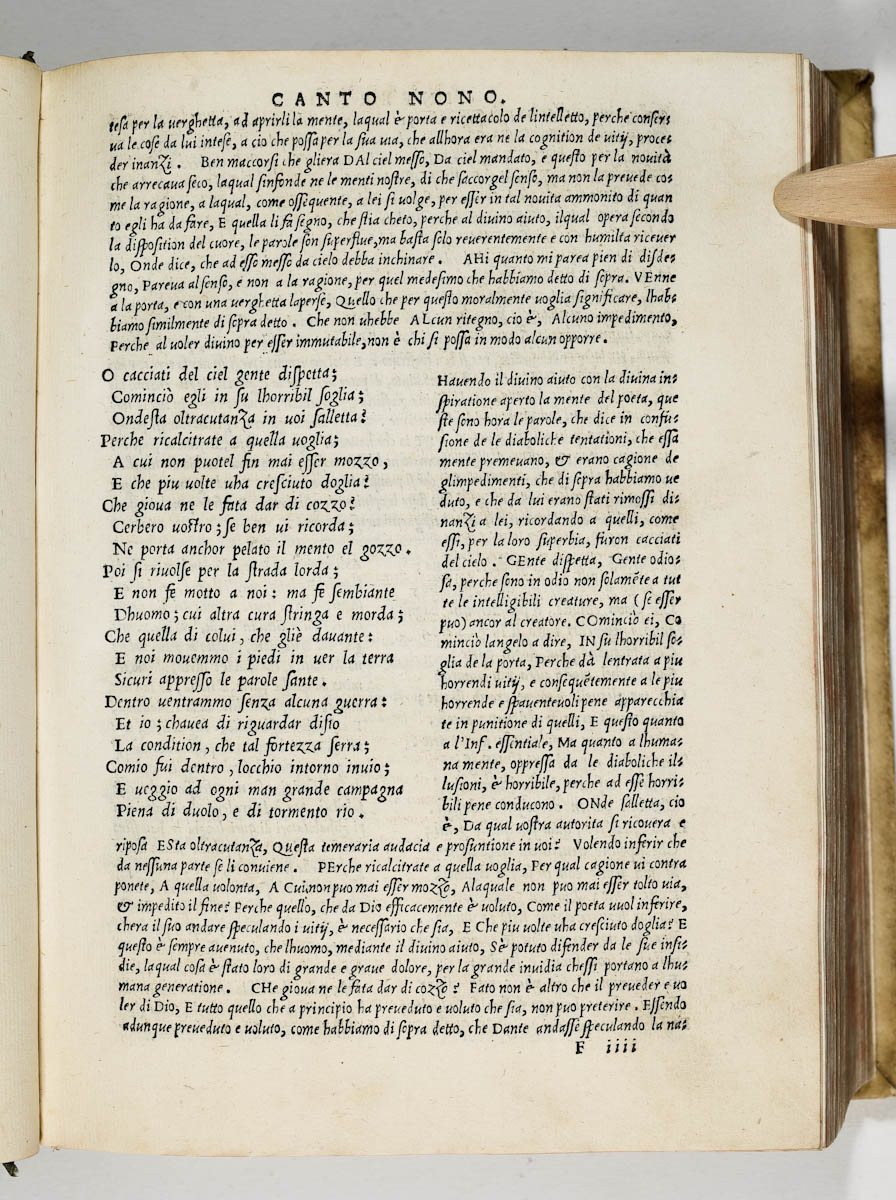 CANTO NONO.
tesa per la uerghetta, ad aprirli la mente, laqual è porta e ricettacolo de lintelletto, perche conser-
ua le cose da lui intese, a cio che possa per la sua uia, che allhora era ne la cognition de uitij, proce-
der inanzi. Ben maccorsi che gliera DAl ciel messo, Da ciel mandato, e questo per la nouità
che arrecaua seco, laqual sinfonde ne le menti nostre, di che saccorgel senso, ma non la preuede co-
me la ragione, a laqual, come ossequente, a lei si uolge, per esser in tal nouita ammonito di quan
to egli ha da fare, E quella li fa segno, che stia cheto, perche al diuino aiuto, ilqual opera secondo
la disposition del cuore, le parole son superflue, ma basta solo reuerentemente e con humilta riceuer
lo, Onde dice, che ad esso messo da cielo debba inchinare. AHi quanto mi parea pien di disde-
gno, Pareua al senso, e non a la ragione, per quel medesimo che habbiamo detto di sopra. VEnne
a la porta, e con una uerghetta laperse, Quello che per questo moralmente uoglia significare, lhab-
biamo similmente di sopra detto. Che non uhebbe ALcun ritegno, cio è, Alcuno impedimento,
Perche al uoler diuino per esser immutabile, non è chi si possa in modo alcun opporre.
O cacciati del ciel gente dispetta;
Cominciò egli in su lhorribil soglia;
Ondesta oltracutanza in uoi salletta?
Perche ricalcitrate a quella uoglia;
A cui non puotel fin mai esser mozzo,
E che piu uolte uha cresciuto doglia?
Che gioua ne le fata dar di cozzo?
Cerbero uostro; se ben ui ricorda;
Ne porta anchor pelato il mento el gozzo.
Poi si riuolse per la strada lorda;
E non fe motto a noi: ma fe sembiante
Dhuomo; cui altra cura stringa e morda;
Che quella di colui, che gliè dauante:
E noi mouemmo i piedi in uer la terra
Sicuri appresso le parole sante.
Dentro uentrammo senza alcuna guerra:
Et io; chauea di riguardar disio
La condition, che tal fortezza serra;
Comio fui dentro, locchio intorno inuio;
E ueggio ad ogni man grande campagna
Piena di duolo, e di tormento rio.
Hauendo il diuino aiuto con la diuina in-
spiratione aperto la mente del poeta, que
ste sono hora le parole, che dice in confu-
sione de le diaboliche tentationi, che essa
mente premeuano, & erano cagione de
glimpedimenti, che di sopra habbiamo ue
duto, e che da lui erano stati rimossi di-
nanzi a lei, ricordando a quelli, come
essi, per la loro superbia, furon cacciati
del cielo. GEnte dispetta, Gente odio-
sa, perche sono in odio non solamēte a tut
te le intelligibili creature, ma (se esser
puo) ancor al creatore. COminciò ei, Co
minciò langelo a dire, IN su lhorribil so-
glia de la porta, Perche dà lentrata a piu
horrendi uitij, e consequētemente a le piu
horrende e spauenteuoli pene apparecchia
te in punitione di quelli, E questo quanto
a l'Inf. essentiale, Ma quanto a lhuma-
na mente, oppressa da le diaboliche il-
lusioni, è horribile, perche ad esse horri-
bili pene conducono. ONde salletta, cio
è, Da qual uostra autorita si ricouera e
riposa ESta oltracutanza, Questa temeraria audacia e prosuntione in uoi? Volendo inferir che
da nessuna parte se li conuiene. PErche ricalcitrate a quella uoglia, Per qual cagione ui contra
ponete, A quella uolonta, A Cui non puo mai esser mozzo, Alaquale non puo mai esser tolto uia,
& impedito il fine? Perche quello, che da Dio efficacemente è uoluto, Come il poeta uuol inferire,
chera il suo andare speculando i uitij, è necessario che sia, E Che piu uolte uha cresciuto doglia? E
questo è sempre auenuto, che lhuomo, mediante il diuino aiuto, Sè potuto difender da le sue insi-
die, laqual cosa è stato loro di grande e graue dolore, per la grande inuidia chessi portano a lhu-
mana generatione. CHe gioua ne le fata dar di cozzo? Fato non è altro che il preueder e uo
ler di Dio, E tutto quello che a principio ha preueduto e uoluto che sia, non puo preterire. Essendo
adunque preueduto e uoluto, come habbiamo di sopra detto, che Dante andasse speculando la na-
F iiii